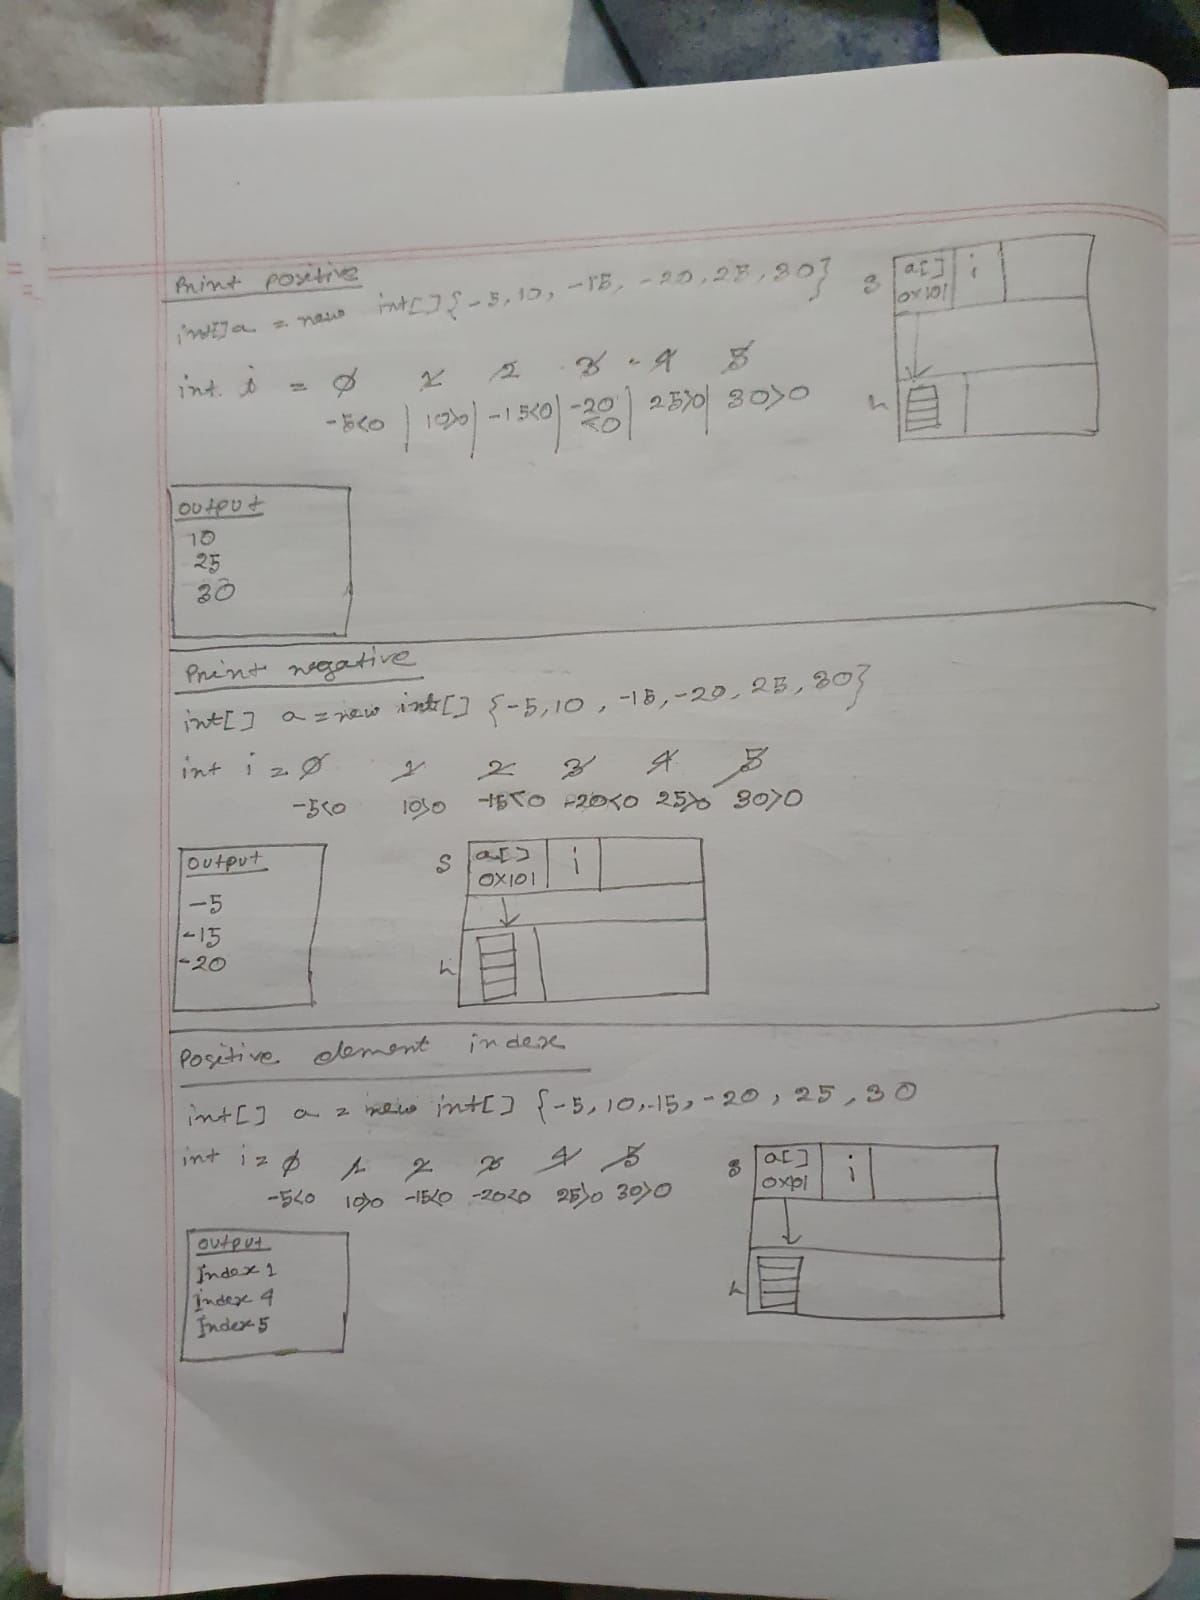 Print positive
int[]a = new int[]{-5,10, -15, -20,25,30}
int i = 0 1 2 3 4 5
-5<0 | 10>0 | -15<0 | -20<0 | 25>0 | 30>0
S a[] i
0x101
h
output
10
25
30
Print negative
int[] a = new int[] {-5,10, -15,-20, 25,30}
int i = 0 1 2 3 4 5
-5<0 10>0 -15<0 -20<0 25>0 30>0
output
-5
-15
-20
S a[] i
0X101
h
Positive element index
int[] a = new int[] {-5,10,-15,-20, 25,30
int i = 0 1 2 3 4 5
-5<0 10>0 -15<0 -20<0 25>0 30>0
S a[] i
0x101
h
output
Index 1
Index 4
Index 5